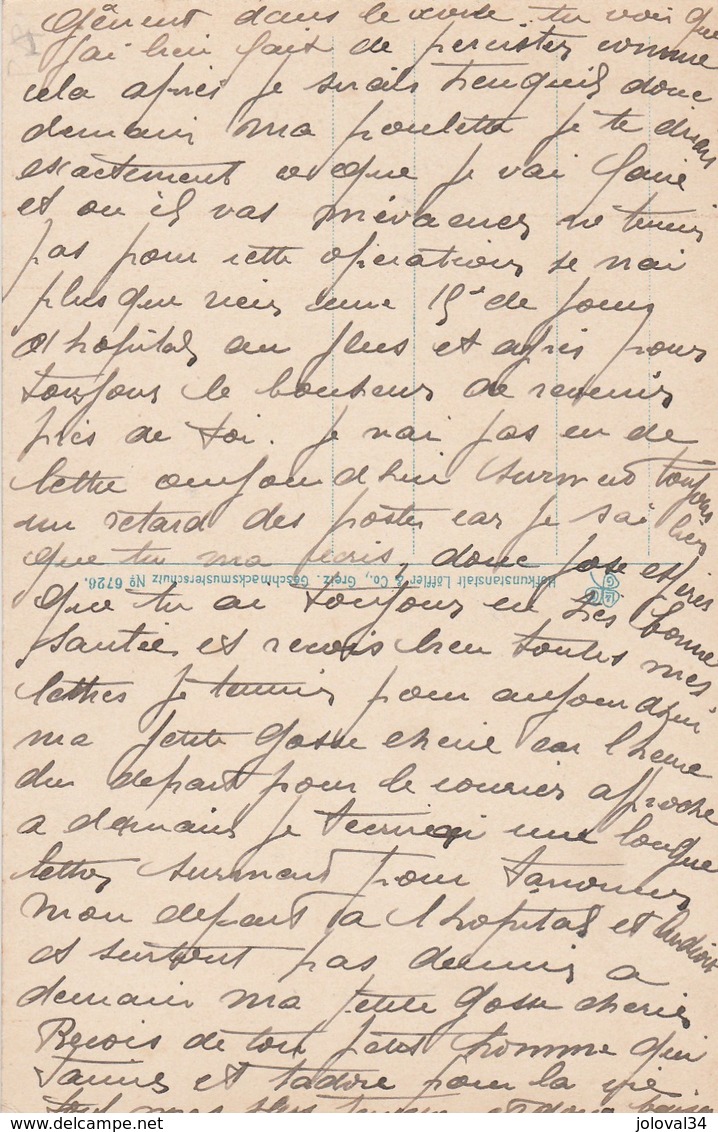 gênent dans le corde tu vois que
j'ai bien fait de percister comme
cela après je serais trenquil donc
demain ma poulette je te dirais
exactement ce que je vai faire
et ou il vas m'évacuer ne tennui
pas pour cette opération se nai
plus que rien une 15e de jours
d hopital au plus et après pour
toujour le bonheur de revenir
près de toi. je nai pas eu de
lettre aujourdhui surment toujours
un retard des postes car je sai bien
que tu ma écris, donc jose espérer
Hofkunstanstalt Löffler & Co., Greiz. Geschmacksmusterschutz No 6726.
que tu ai toujour en très bonne
santée et recois bien toutes mes
lettres je termine pour aujourdhui
ma petite gosse cherie car lheure
du depart pour le courier approche
a demain je tecrirai une longue
lettre surment pour tanoncer
mon depart a l hopital et lendroit
et surtout pas dennui a
demain ma petite gosse cherie
Recois de ton petit homme qui
taime et tadore pour la vie
tout mes plus tendre et doux baiser
joloval34